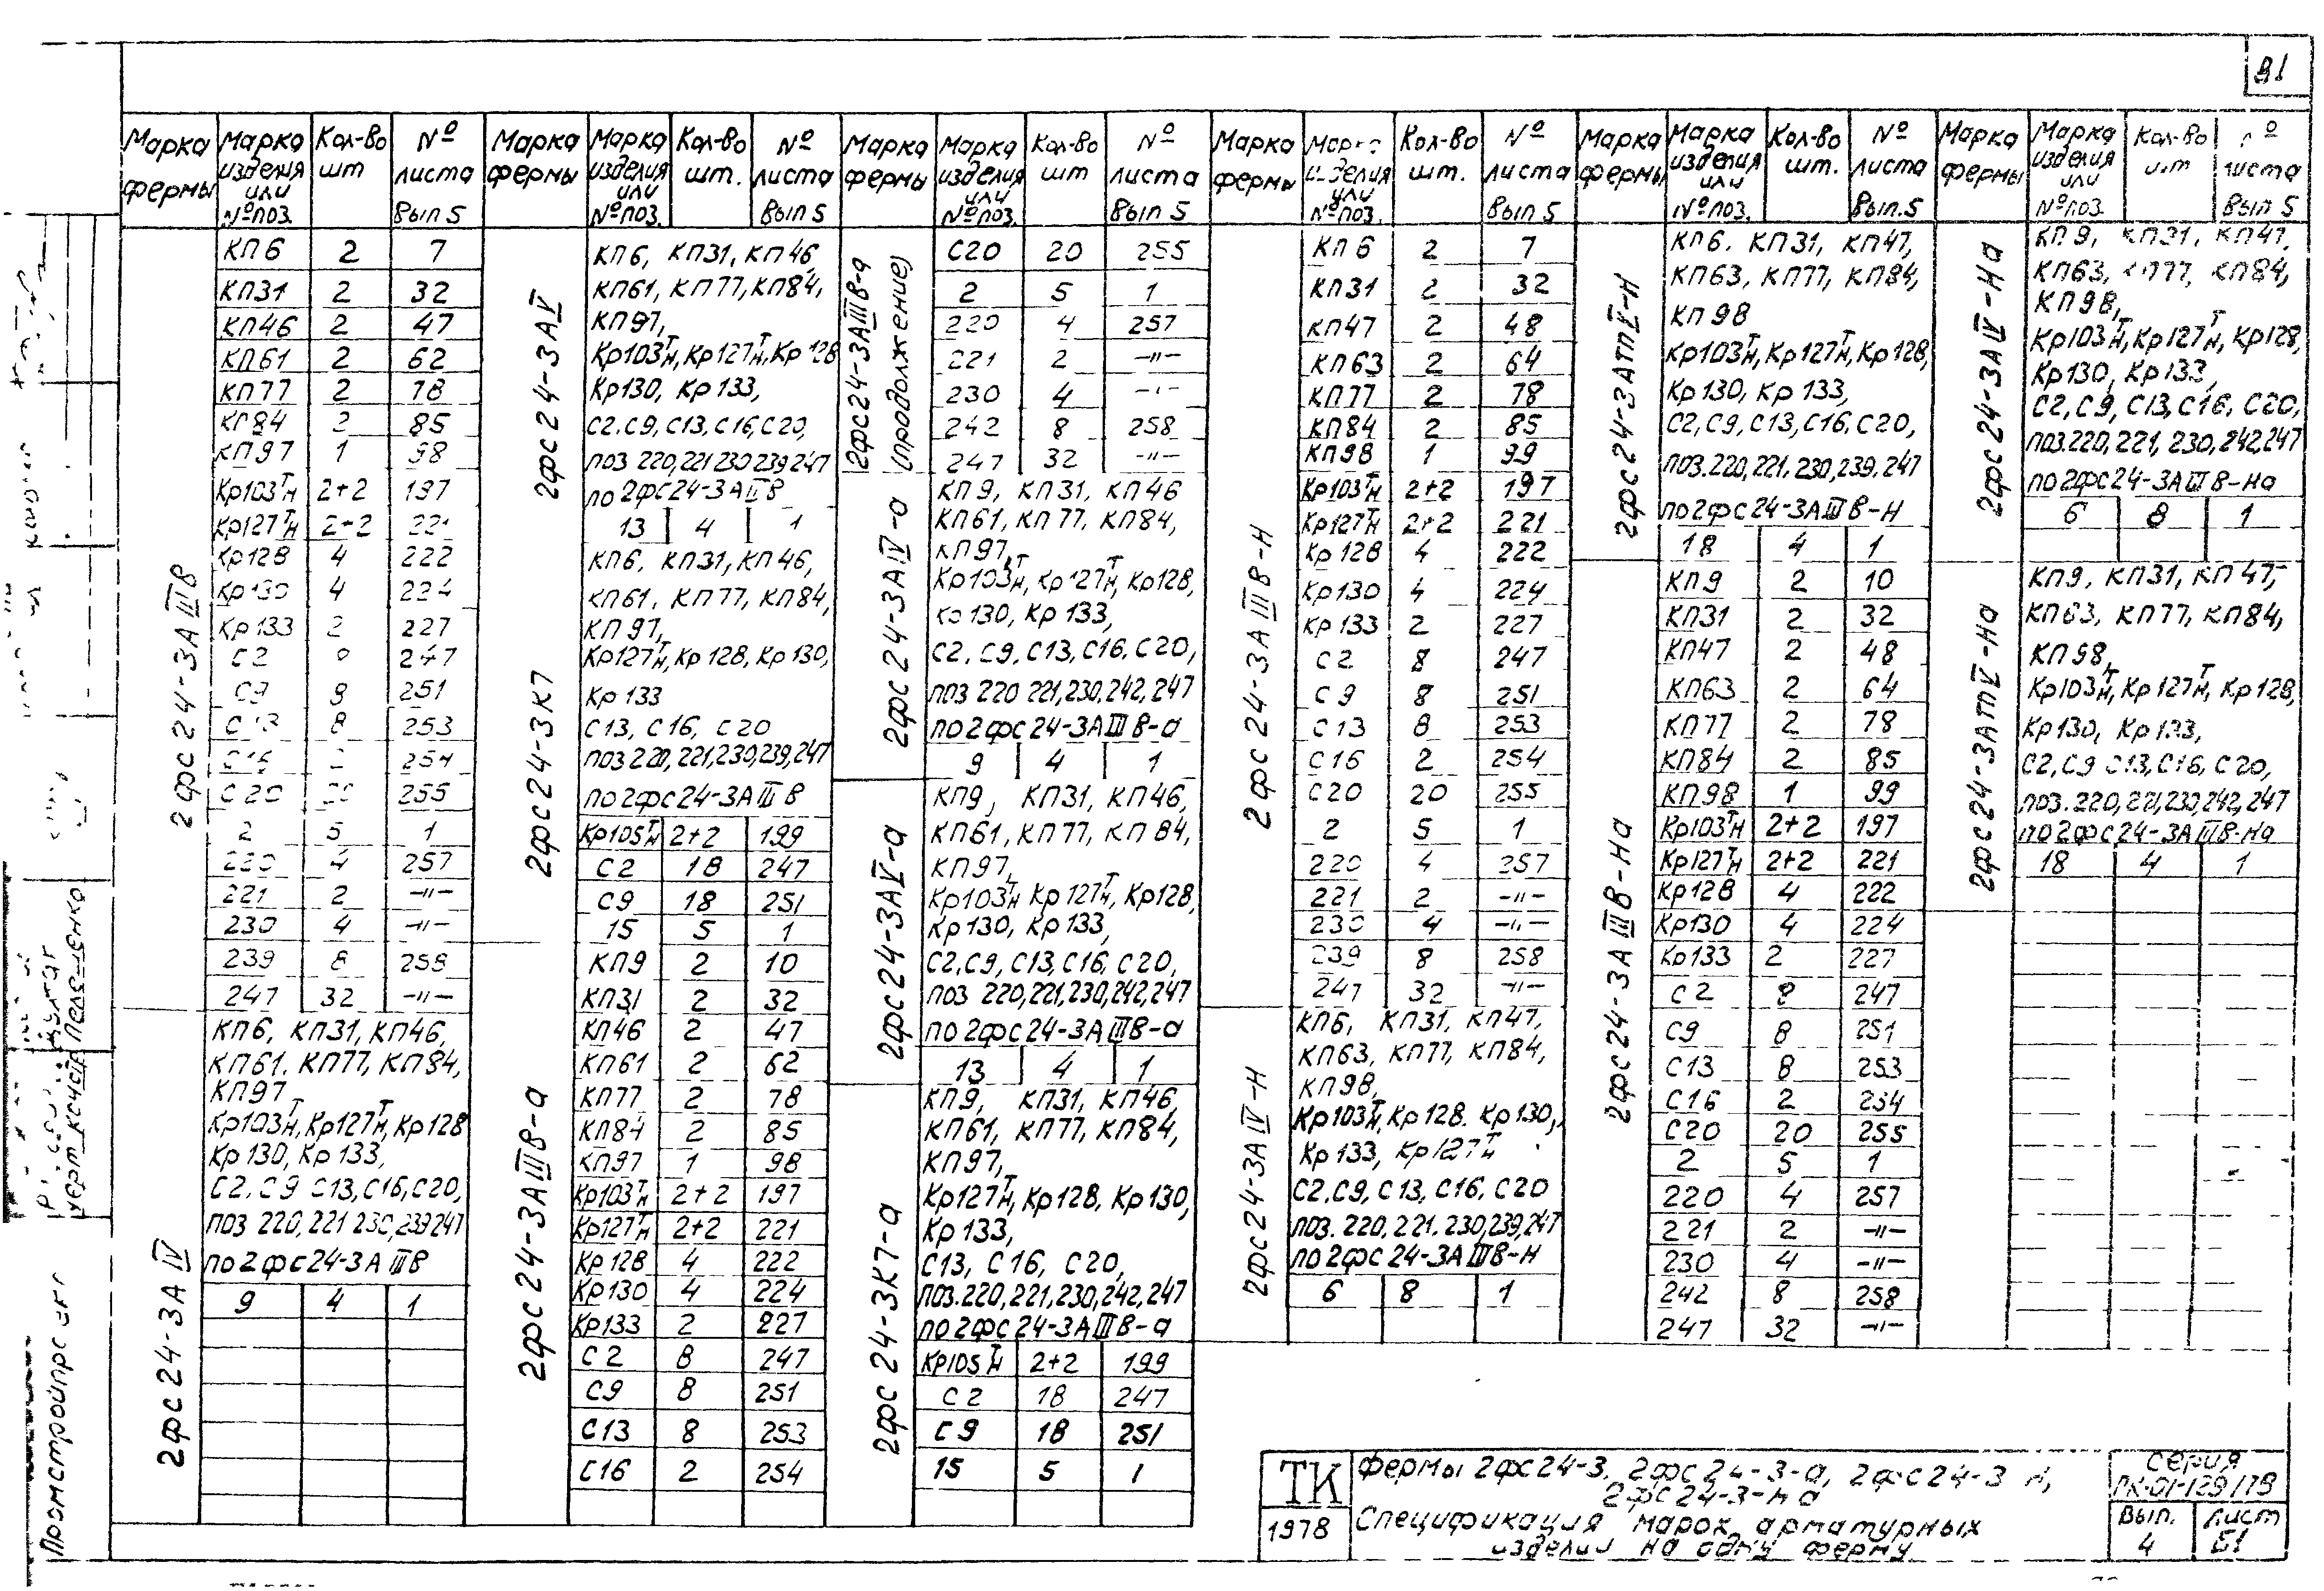 81
Марка фермы | Марка изделия или № поз. | Кол-во шт | № листа Вып 5
2фс24-3АIIIв
КП6 2 7
КП31 2 32
КП46 2 47
КП61 2 62
КП77 2 78
КП84 2 85
КП97 1 98
Кр103тн 2+2 197
Кр127тн 2+2 221
Кр128 4 222
Кр130 4 224
Кр133 2 227
С2 247
С9 8 251
С13 8 253
С16 254
С20 20 255
2 5 1
220 4 257
221 2 -"-
230 4 -"-
239 8 258
247 32 -"-
2фс24-3АIV
КП6, КП31, КП46,
КП61, КП77, КП84,
КП97
Кр103тн, Кр127тн, Кр128
Кр130, Кр133,
С2, С9 С13, С16, С20,
поз 220, 221 230, 239 247
по 2фс24-3АIIIв
9 4 1
Марка фермы | Марка изделия или № поз. | Кол-во шт. | № листа Вып 5
2фс24-3АV
КП6, КП31, КП46,
КП61, КП77, КП84,
КП97,
Кр103тн, Кр127тн, Кр128
Кр130, Кр133,
С2, С9, С13, С16, С20,
поз 220, 221 230 239 247
по 2фс24-3АIIIв
13 4 1
2фс24-3К7
КП6, КП31, КП46,
КП61, КП77, КП84,
КП97,
Кр127тн, Кр128, Кр130,
Кр133
С13, С16, С20
поз 220, 221, 230, 239, 247
по 2фс24-3АIIIв
Кр105тн 2+2 199
С2 18 247
С9 18 251
15 5 1
2фс24-3АIIIв-а
КП9 2 10
КП31 2 32
КП46 2 47
КП61 2 62
КП77 2 78
КП84 2 85
КП97 1 98
Кр103тн 2+2 197
Кр127тн 2+2 221
Кр128 4 222
Кр130 4 224
Кр133 2 227
С2 8 247
С9 8 251
С13 8 253
С16 2 254
Марка фермы | Марка изделия или № поз. | Кол-во шт | № листа Вып 5
2фс24-3АIIIв-а (продолжение)
С20 20 255
2 5 1
220 4 257
221 2 -"-
230 4 -"-
242 8 258
247 32 -"-
2фс24-3АIV-а
КП9, КП31, КП46
КП61, КП77, КП84,
КП97,
Кр103тн, Кр127тн, Кр128,
Кр130, Кр133,
С2, С9, С13, С16, С20,
поз 220 221, 230, 242, 247
по 2фс24-3АIIIв-а
9 4 1
2фс24-3АV-а
КП9, КП31, КП46,
КП61, КП77, КП84,
КП97,
Кр103тн Кр127тн, Кр128,
Кр130, Кр133,
С2, С9, С13, С16, С20,
поз 220, 221, 230, 242, 247
по 2фс24-3АIIIв-а
13 4 1
2фс24-3К7-а
КП9, КП31, КП46,
КП61, КП77, КП84,
КП97,
Кр127тн, Кр128, Кр130,
Кр133,
С13, С16, С20,
поз. 220, 221, 230, 242, 247
по 2фс24-3АIIIв-а
Кр105тн 2+2 199
С2 18 247
С9 18 251
15 5 1
Марка фермы | Марка изделия или № поз. | Кол-во шт. | № листа Вып 5
2фс24-3АIIIв-Н
КП6 2 7
КП31 2 32
КП47 2 48
КП63 2 64
КП77 2 78
КП84 2 85
КП98 1 99
Кр103тн 2+2 197
Кр127тн 2+2 221
Кр128 4 222
Кр130 4 224
Кр133 2 227
С2 8 247
С9 8 251
С13 8 253
С16 2 254
С20 20 255
2 5 1
220 4 257
221 2 -"-
230 4 -"-
239 8 258
247 32 -"-
2фс24-3АIV-Н
КП6, КП31, КП47,
КП63, КП77, КП84,
КП98,
Кр103тн, Кр128. Кр130,
Кр133, Кр127тн
С2, С9, С13, С16, С20
поз. 220, 221. 230, 239, 247
по 2фс24-3АIIIв-Н
6 8 1
Марка фермы | Марка изделия или № поз. | Кол-во шт. | № листа Вып.5
2фс24-3АтпV-Н
КП6. КП31, КП47,
КП63, КП77, КП84,
КП98
Кр103тн, Кр127тн, Кр128,
Кр130, Кр133,
С2, С9, С13, С16, С20,
поз. 220, 221. 230, 239, 247
по 2фс24-3АIIIв-Н
18 4 1
2фс24-3АIIIв-На
КП9 2 10
КП31 2 32
КП47 2 48
КП63 2 64
КП77 2 78
КП84 2 85
КП98 1 99
Кр103тн 2+2 197
Кр127тн 2+2 221
Кр128 4 222
Кр130 4 224
Кр133 2 227
С2 8 247
С9 8 251
С13 8 253
С16 2 254
С20 20 255
2 5 1
220 4 257
221 2 -"-
230 4 -"-
242 8 258
247 32 -"-
Марка фермы | Марка изделия или № поз. | Кол-во шт | № листа Вып 5
2фс24-3АIV-На
КП9, КП31, КП47,
КП63, КП77, КП84,
КП98,
Кр103тн, Кр127тн, Кр128,
Кр130, Кр133,
С2, С9, С13, С16, С20,
поз 220, 221, 230, 242, 247
по 2фс24-3АIIIв-На
6 8 1
2фс24-3АтпV-На
КП9, КП31, КП47,
КП63, КП77, КП84,
КП98,
Кр103тн, Кр127тн, Кр128,
Кр130, Кр133,
С2, С9 С13, С16, С20,
поз. 220, 221, 230, 242, 247
по 2фс24-3АIIIв-На
18 4 1
ТК
1978
Фермы 2фс24-3, 2фс24-3-а, 2фс24-3 н,
2фс24-3-на
Спецификация марок арматурных
изделий на одну ферму
Серия
ПК-01-129/78
Вып. 4
Лист 51